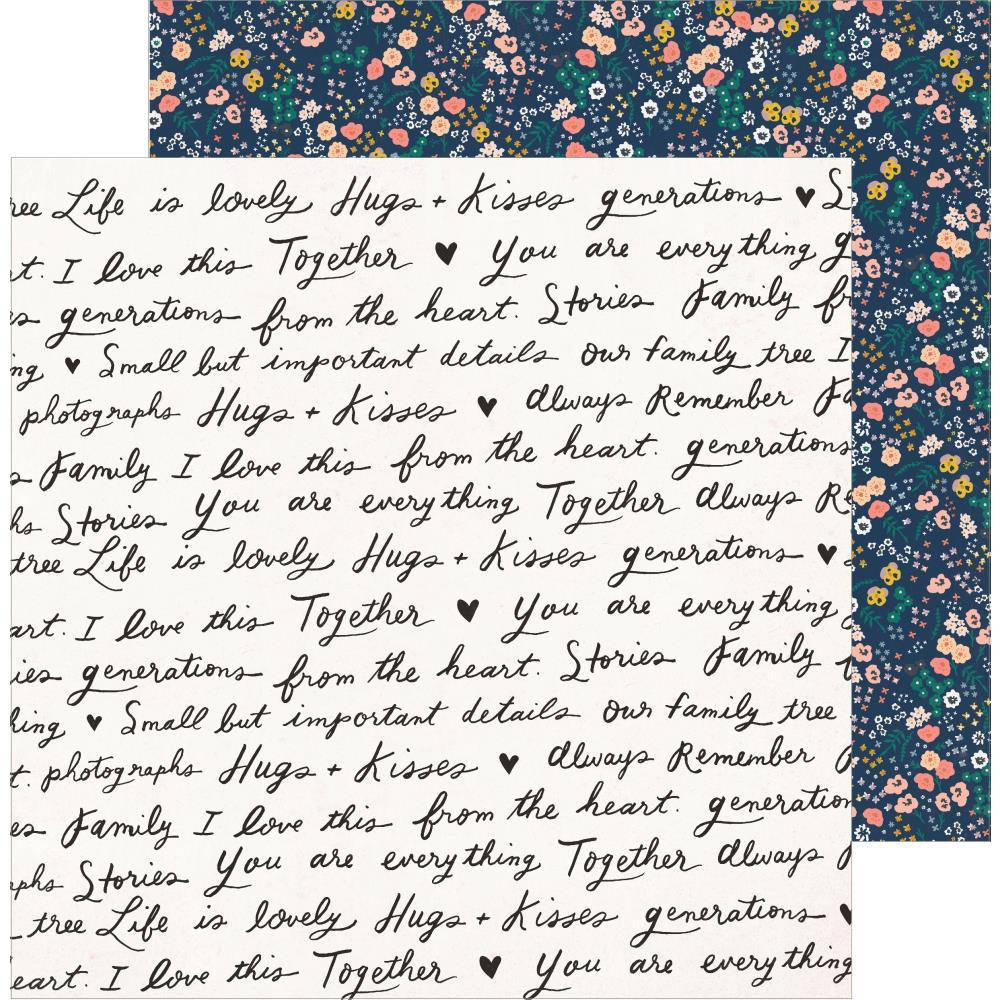 ree Life is lovely Hugs + Kisses generations ♥ S
rt. I love this Together ♥ You are everything g
es generations from the heart. Stories Family fr
ng ♥ Small but important details our family tree I
photographs Hugs + Kisses ♥ always Remember Fa
s Family I love this from the heart. generations
hs Stories You are everything Together always Re
tree Life is lovely Hugs + Kisses generations ♥
art. I love this Together ♥ You are everything
ies generations from the heart. Stories Family
hing ♥ Small but important details our family tree
t. photographs Hugs + Kisses ♥ always Remember
es Family I love this from the heart. generation
aphs Stories You are everything Together always
tree Life is lovely Hugs + Kisses generations ♥
eart. I love this Together ♥ You are everything